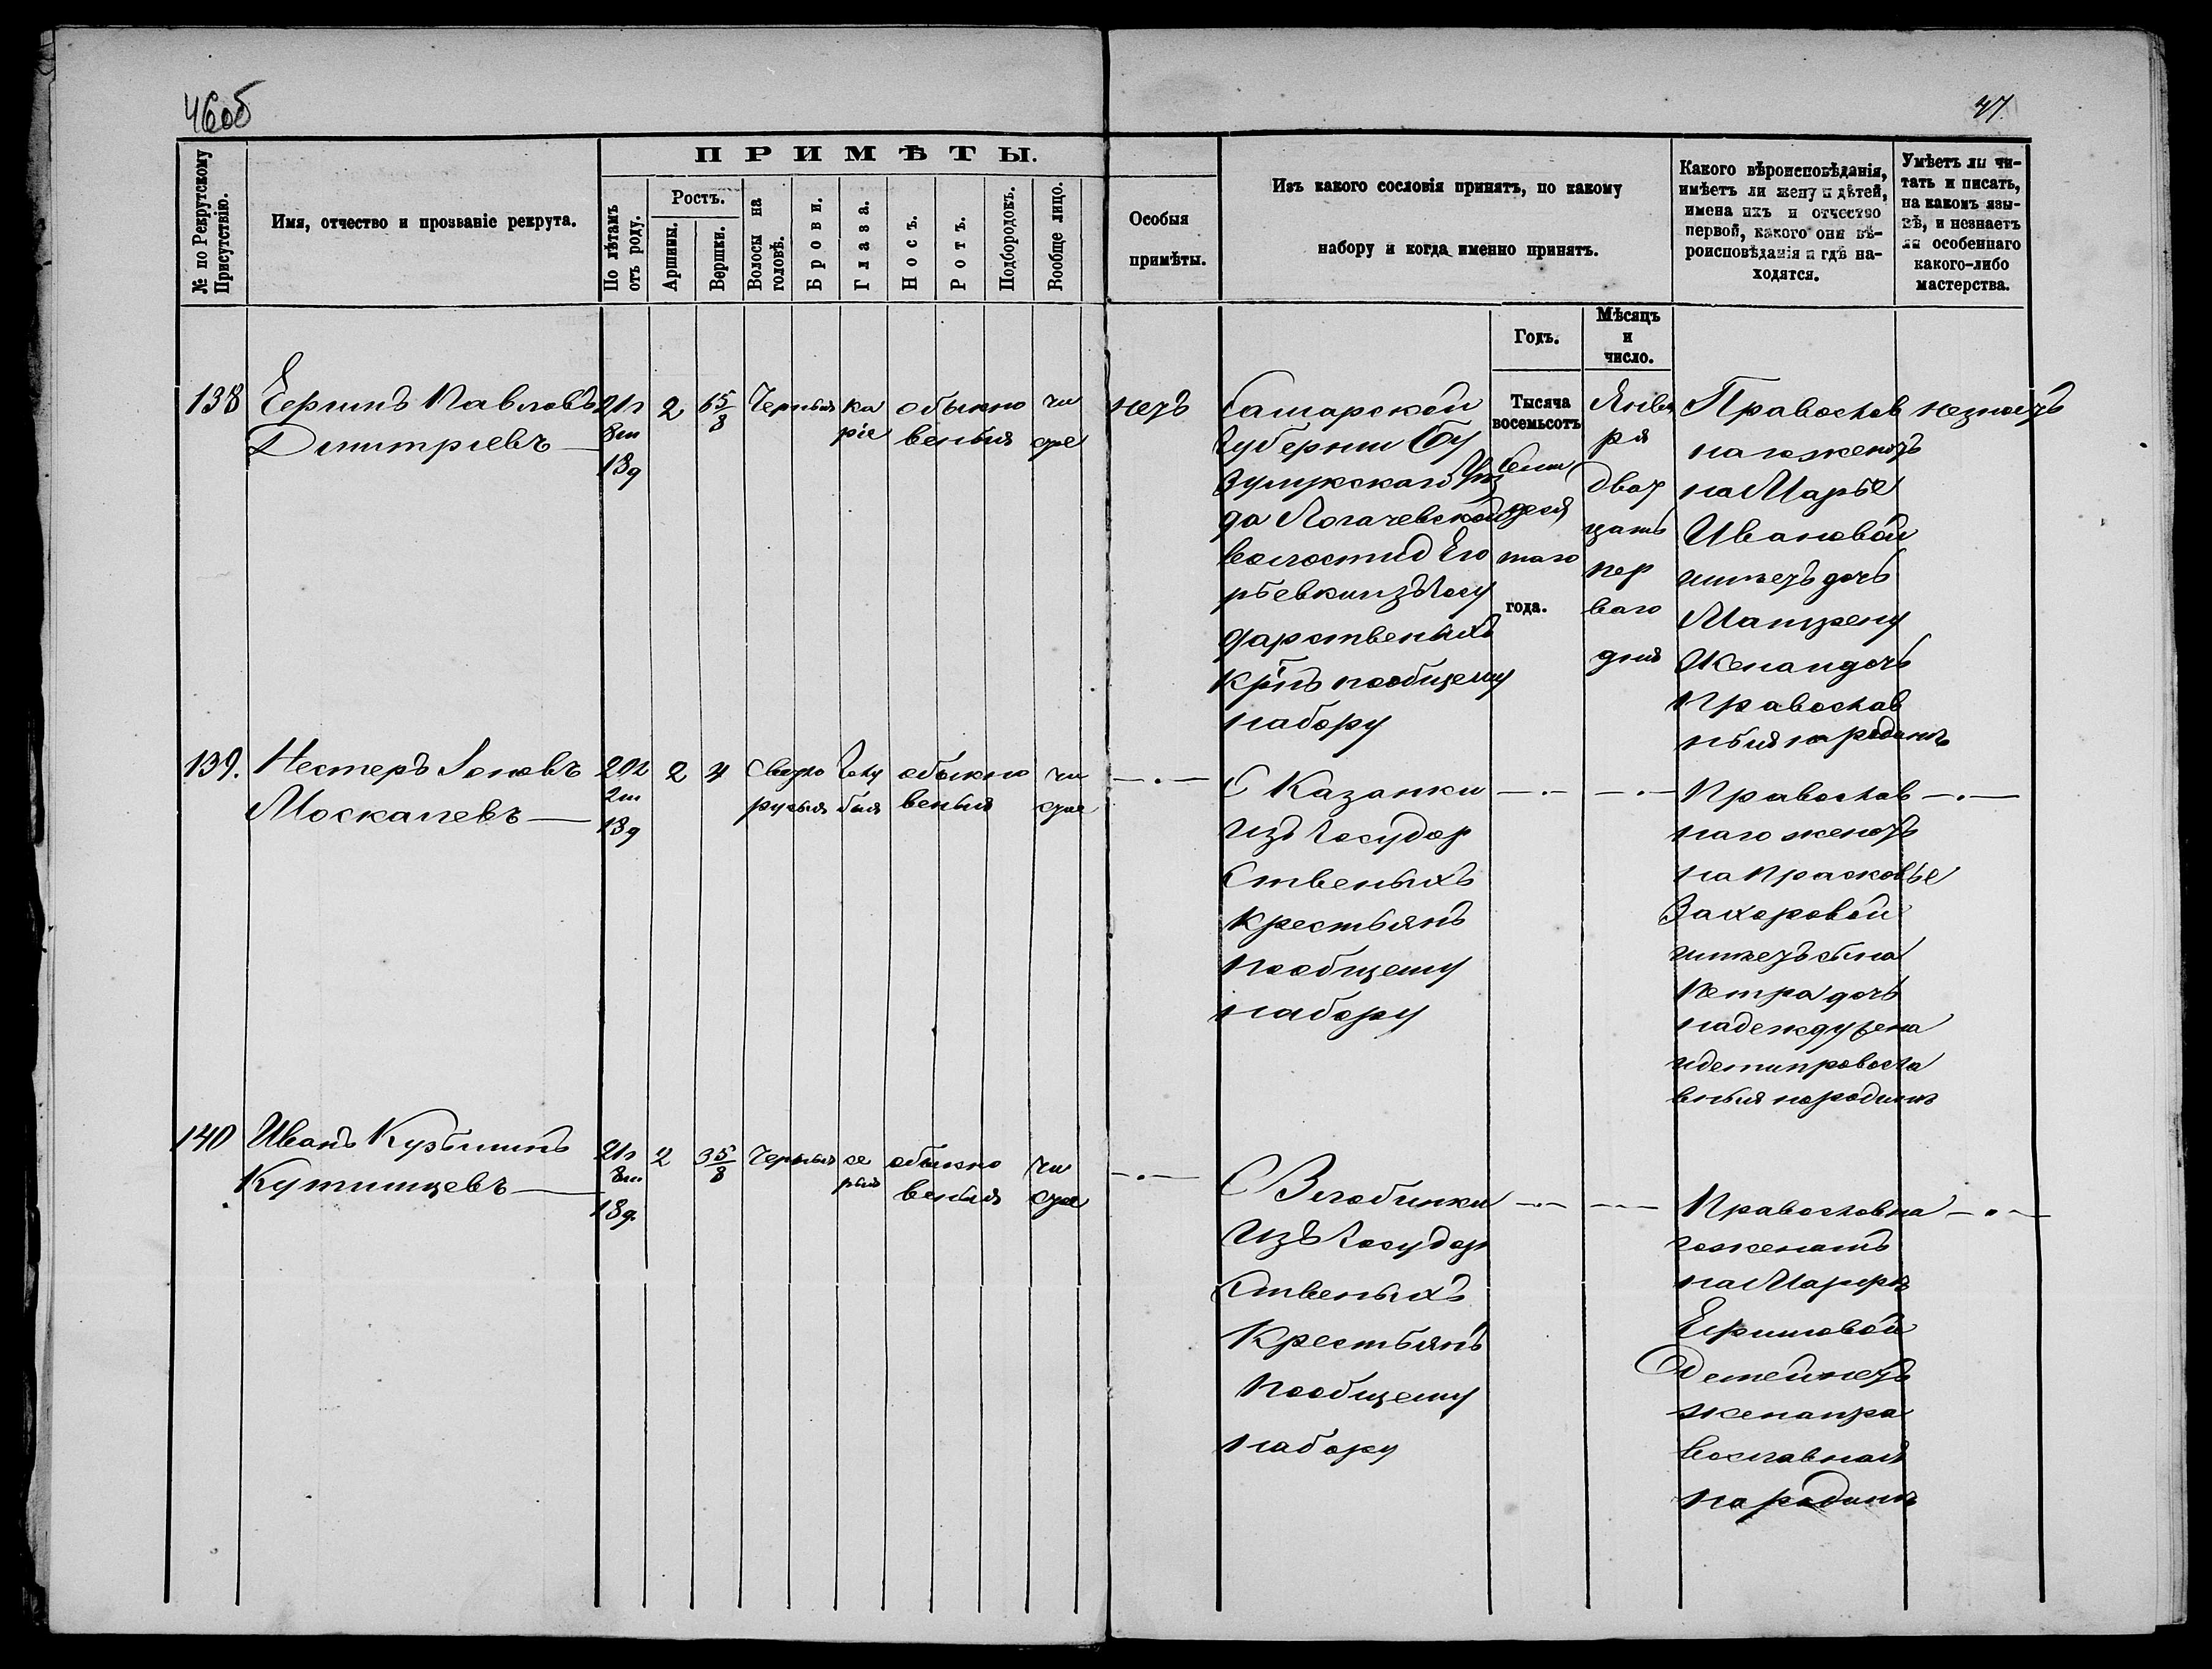 46об
47
№ по Рекрутскому Присутствію.
Имя, отчество и прозваніе рекрута.
ПРИМѢТЫ.
По лѣтамъ отъ роду.
Ростъ.
Аршины.
Вершки.
Волосы на головѣ.
Брови.
Глаза.
Носъ.
Ротъ.
Подбородокъ.
Вообще лицо.
Особыя
примѣты.
Изъ какого сословія принятъ, по какому
набору и когда именно принятъ.
Какого вѣроисповѣданія,
имѣетъ ли жену и дѣтей,
имена ихъ и отчество
первой, какого они вѣ-
роисповѣданія и гдѣ на-
ходятся.
Умѣетъ ли чи-
тать и писать,
на какомъ язы-
кѣ, и незнаетъ
ли особеннаго
какого-либо
мастерства.
Годъ.
Мѣсяцъ
и
число.
138
Павловъ
Дмитріевъ
21г
8м
18д
2
6 5/8
Черныя
ка
ріе
обыкно
веныя
чи
стое
нетъ
Самарской
Губерніи Бу
зулукскаго Уѣз
да Логачевской
волостид Его
рьевкиизъГосу
дарственыхъ
Крнъ пообщему
набору
Тысяча
восемьсотъ
семи
деся
таго
года.
Янва
ря
двад
цать
пер
ваго
дня
Православ
нагоженатъ
наМарье
Ивановой
имѣетъдочь
Матрену
Женаидочь
Православ
ныянародинѣ
незнаетъ
139.
Нестеръ
Москалевъ
20л
2м
18д
2
4
Светло
русыя
Голу
быя
обыкно
веныя
чи
стое
— . —
С Казанки
изъ Государ
ственыхъ
Крестьянъ
Пообщему
набору
— . —
— . —
Православ
наго женатъ
на Прасковье
Захаровой
имѣетъсына
Петра дочь
надеждужена
идетиправосла
вныянародинѣ
— . —
140
Иванъ Кузьминъ
21г
8м
18д.
2
3 5/8
Черныя
се
рыя
обыкно
веныя
чи
стое
— . —
Изъ Государ
ственыхъ
Крестьянъ
Пообщему
набору
— . —
— . —
Православна
гоженатъ
наМарфѣ
Ефимовой
Детейнетъ
женапра
вославная
на родинѣ
— . —